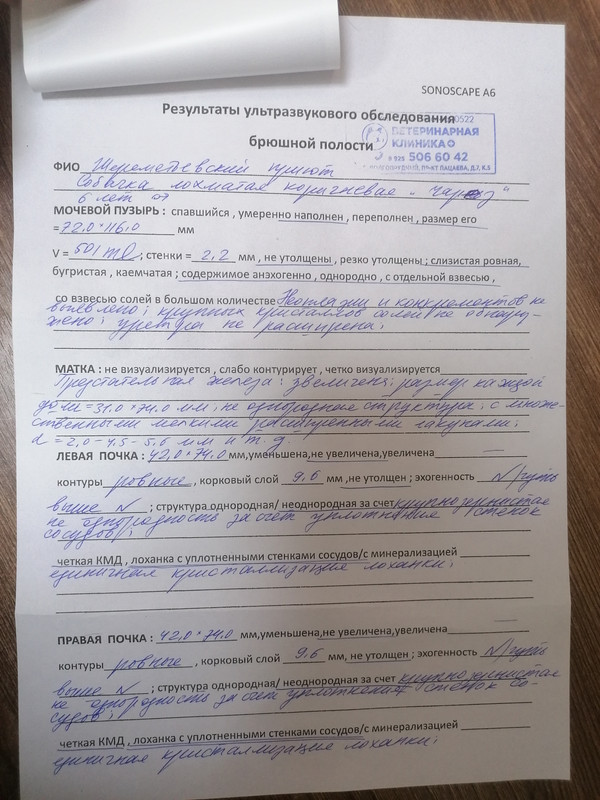 SONOSCAPE A6
Результаты ультразвукового обследования
0522
ВЕТЕРИНАРНАЯ
брюшной полости КЛИНИКА
8 925 506 60 42
ПР-КТ ПАЦАЕВА, Д.7, К.5
ФИО Шереметьевский приют
Собачка лохматая коричневая "
6 лет
МОЧЕВОЙ ПУЗЫРЬ : спавшийся , умеренно наполнен , переполнен , размер его
=72,0*116,0 мм
V = 501 ml ; стенки = 2,2 мм , не утолщены , резко утолщены ; слизистая ровная,
бугристая , каемчатая ; содержимое анэхогенно , однородно , с отдельной взвесью ,
со взвесью солей в большом количестве Неоплазии и конкрементов не
выявлено; крупных кристаллов солей не обнару-
жено; уретра не расширена;
МАТКА : не визуализируется , слабо контурирует , четко визуализируется
Предстательная железа: увеличена; размер каждой
доли = 31,0*74,0 мм; не однородная структура; с множе-
ственными мелкими расширенными лакунами;
d = 2,0-4,5-5,6 мм и т.д.
ЛЕВАЯ ПОЧКА : 42,0*74,0 мм,уменьшена,не увеличена,увеличена
контуры ровные , корковый слой 9,6 мм ,не утолщен ; эхогенность N/чуть
выше N ; структура однородная/ неоднородная за счет крупнозернистая
не однородность за счет уплотнения стенок
сосудов;
четкая КМД , лоханка с уплотненными стенками сосудов/с минерализацией
единичная кристаллизация лоханки;
ПРАВАЯ ПОЧКА : 42,0*74,0 мм,уменьшена,не увеличена,увеличена
контуры ровные , корковый слой 9,6 мм, не утолщен ; эхогенность N/чуть
выше N ; структура однородная/ неоднородная за счет крупнозернистая
не однородность за счет уплотнения стенок со-
судов;
четкая КМД , лоханка с уплотненными стенками сосудов/с минерализацией
единичная кристаллизация лоханки;